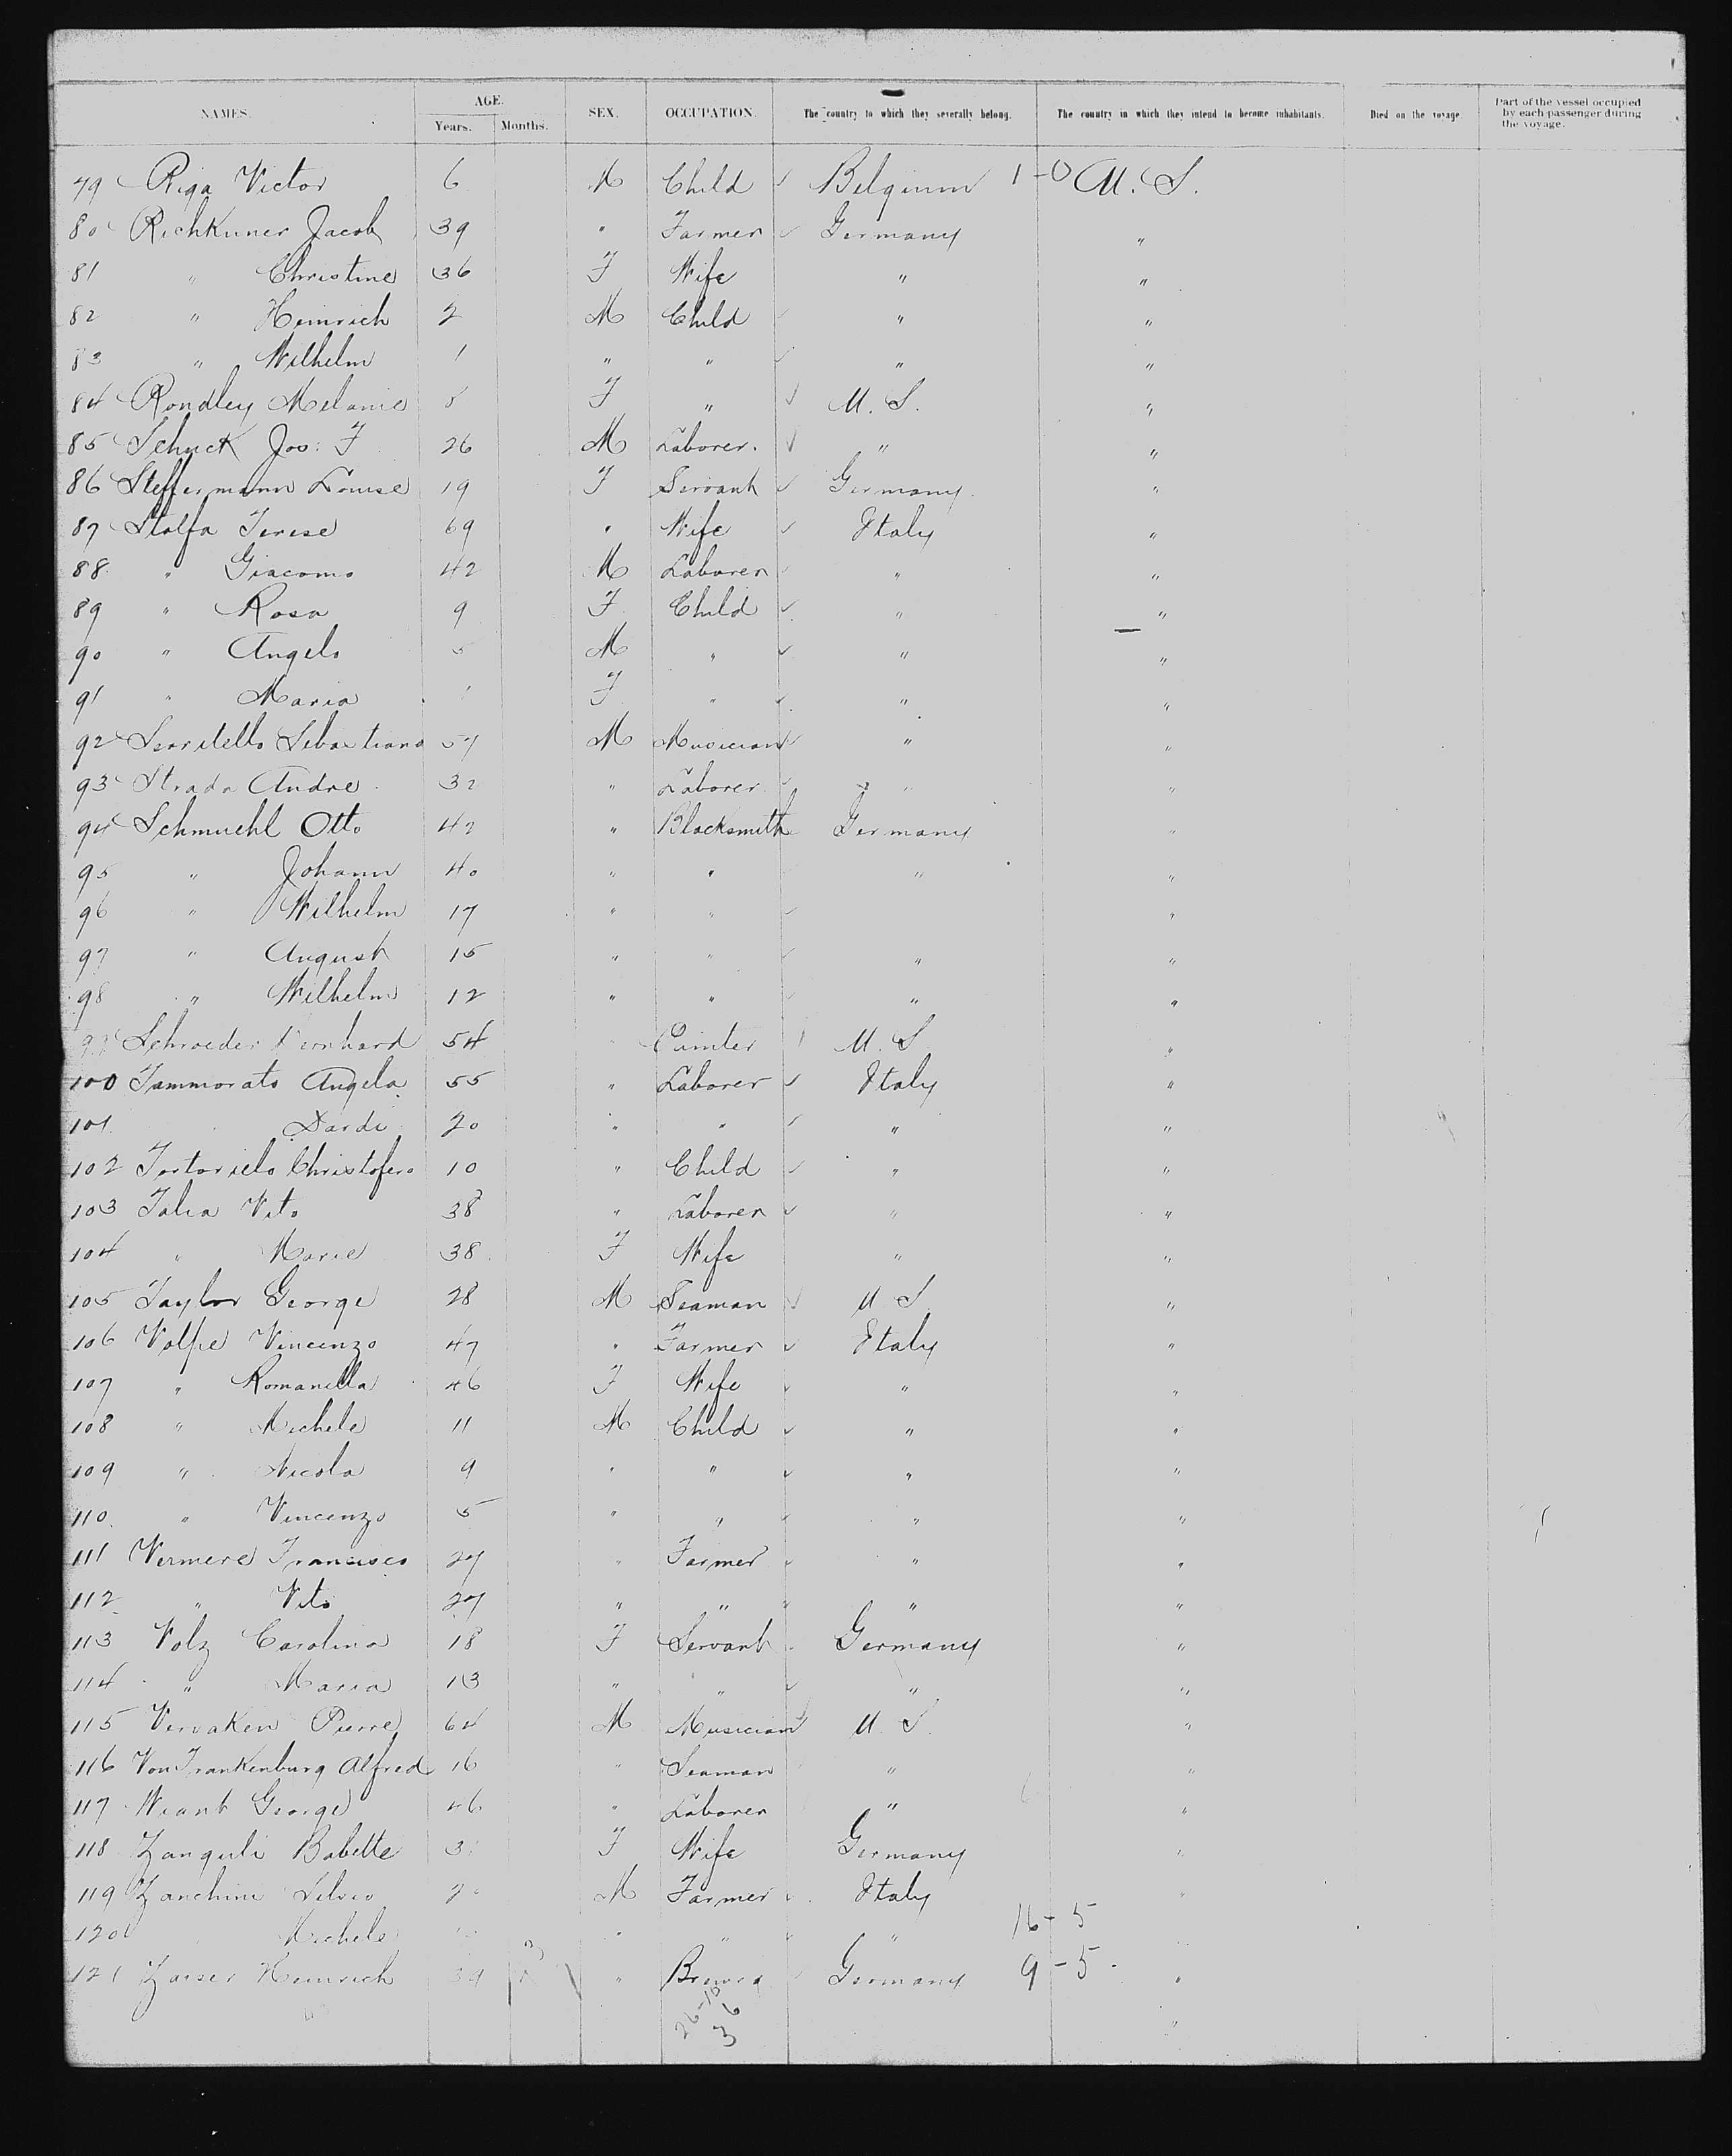 NAMES. AGE. Years. Months. SEX. OCCUPATION. The country to which they severally belong. The country in which they intend to become inhabitants. Died on the voyage. Part of the vessel occupied by each passenger during the voyage.
79 Riga Victor 6 M Child Belgium 1-0 U. S.
80 Richkuner Jacob 39 " Farmer Germany "
81 " Christine 36 F Wife " "
82 " Heinrich 2 M Child " "
83 " Wilhelm 1 " " " "
84 Rondley Melanie F " U. S. "
85 Schuck Jos: F 26 M Laborer. " "
86 Steffermann Louise 19 F Servant Germany "
87 Stolfa Terese 69 " Wife Italy "
88 " Giacomo 42 M Laborer " "
89 " Rosa 9 F Child " "
90 " Angelo 5 M " " "
91 " Maria 1 F " " "
92 Sebastiano 57 M Musician " "
93 Strada Andre 32 " Laborer " "
94 Schmuehl Otto 42 " Blacksmith Germany "
95 " Johann 40 " " " "
96 " Wilhelm 17 " " "
97 " August 15 " " " "
98 " Wilhelm 12 " " " "
99 Schroeder Bernhard 54 " U. S "
100 Tammorato Angela 55 " Laborer Italy "
101 Dardi 20 " " " "
102 Tortorielo Christofero 10 " Child " "
103 Talia Vito 38 " Laborer " "
104 " Marie 38 F Wife " "
105 Taylor George 28 M Seaman U S "
106 Volpe Vincenzo 47 " Farmer Italy "
107 " Romanella 46 F Wife " "
108 " Michele 11 M Child " "
109 " Nicola 9 " " " "
110 " Vincenzo 5 " " " "
111 Vermere Francisco 27 " Farmer " "
112 " Vito 27 " " " "
113 Volz Carolina 18 F Servant Germany "
114 " Maria 13 " " " "
115 Vervaken Pierre 64 M Musician U S. "
116 Von Frankenburg Alfred 16 " Seaman " "
117 Wiant George 46 " Laborer " "
118 Zanguli Babette F Wife Germany "
119 Zanchini Silvio M Farmer Italy "
120 Michele " " " 16-5
121 Zaiser Heinrich 39 " Germany 9-5 "
26-10 "
36